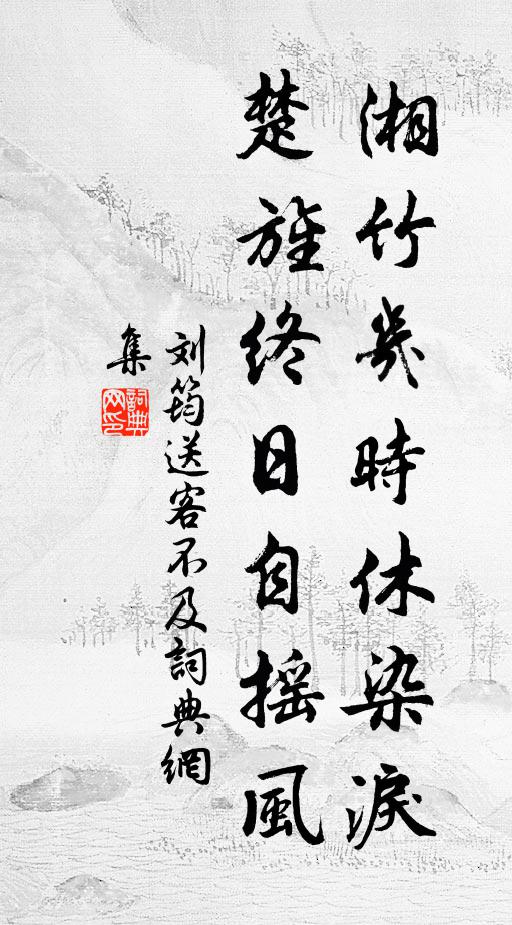 湘竹幾時休染淚
楚旌終日自摇風
刘筠送客不及詞典網
集
詞典
网印